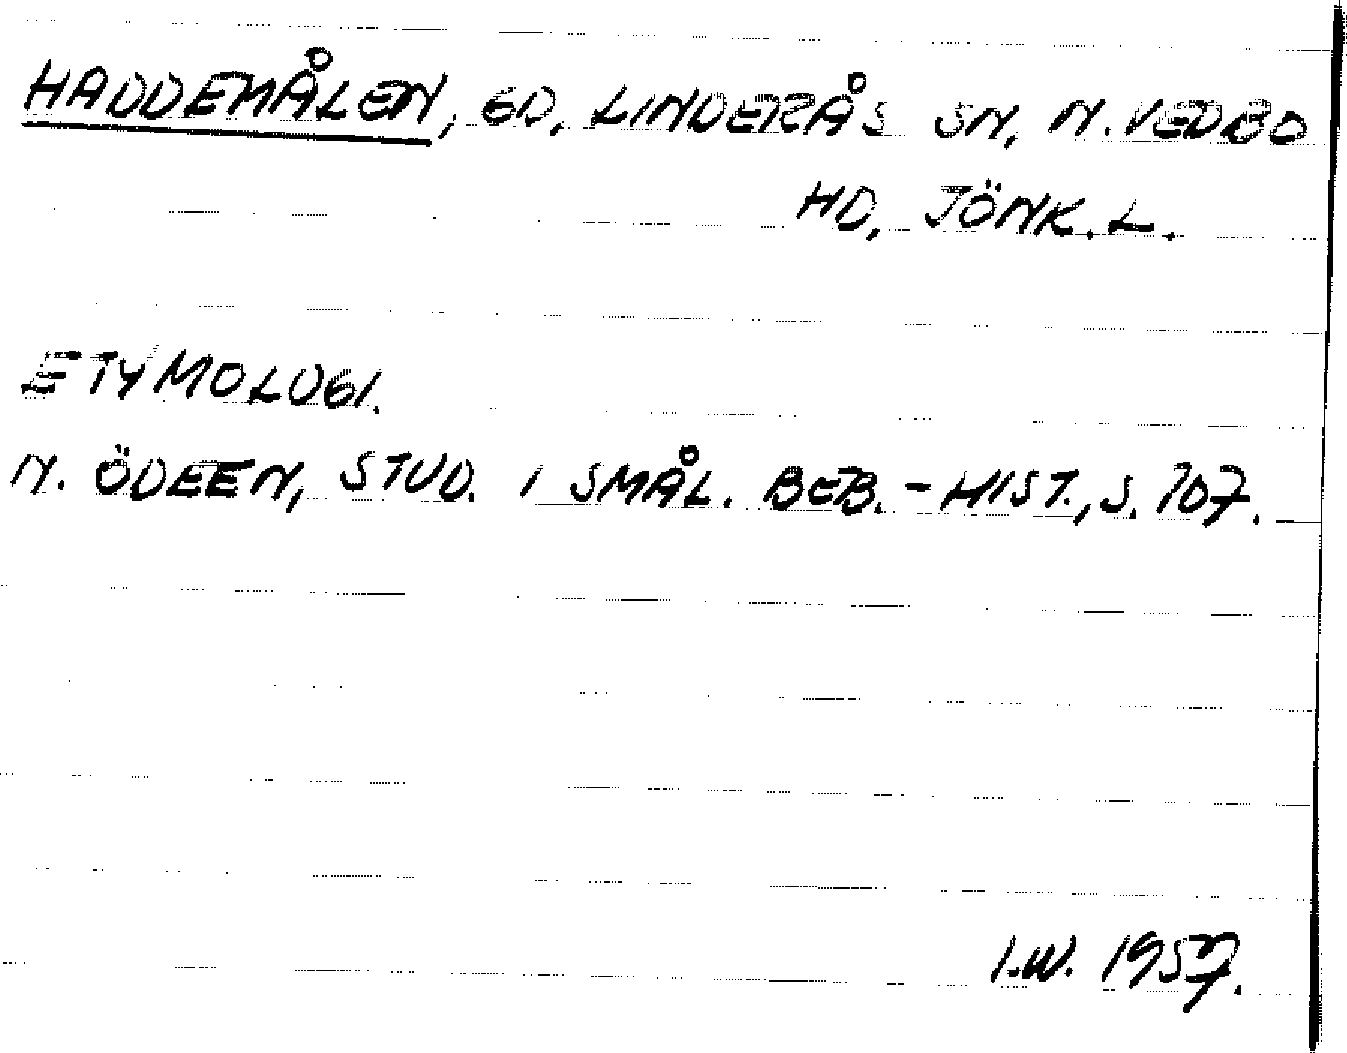 HADDEMÅLEN, GD, LINDERÅS SN, N. VEDBO
HD, JÖNK. L.
ETYMOLOGI.
N. ÖDEEN, STUD. I SMÅL. BEB.-HIST., S. 107.
I.W. 1957.